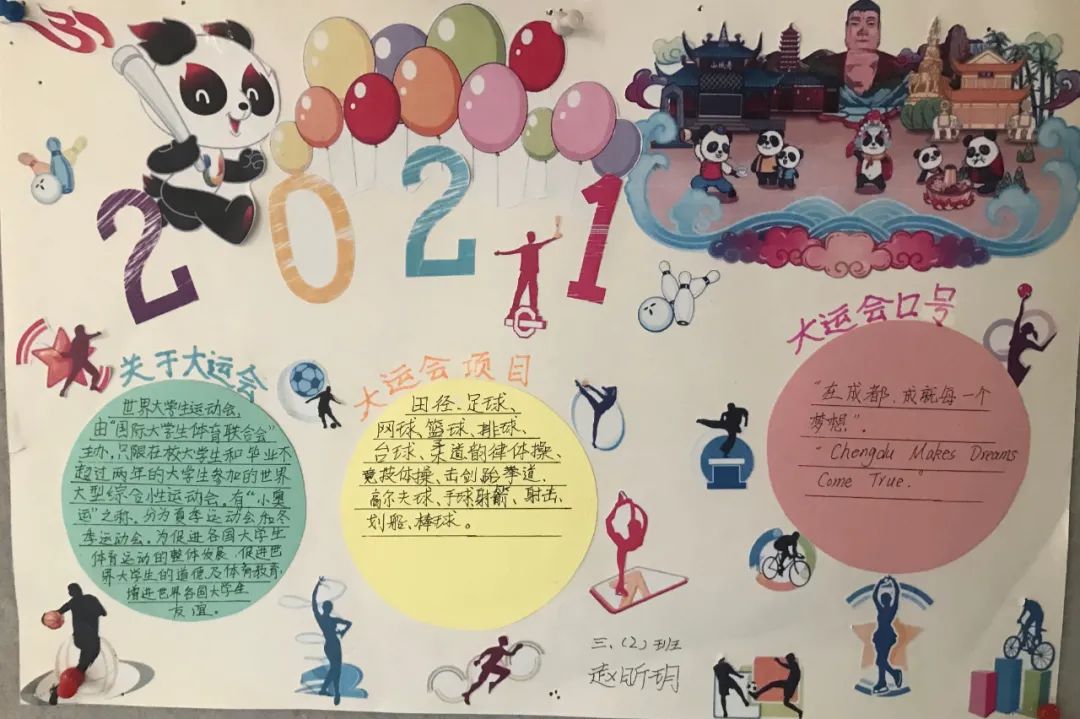 2021
关于大运会
世界大学生运动会,
由"国际大学生体育联合会"
主办,只限在校大学生和毕业不
超过两年的大学生参加的世界
大型综合小性运动会。有"小奥
运"之称。分为夏季运动会和冬
季运动会。为促进各国大学生
体育运动的整体发展,促进世
界大学生的道德及体育教育,
增进世界各国大学生
友谊。
大运会项目
田径、足球、
网球、篮球、排球、
台球、柔道、韵律体操、
竞技体操、击剑、跆拳道、
高尔夫球、手球、射箭、射击、
划船、棒球。
大运会口号
"在成都,成就每一个
梦想"。
"Chengdu Makes Dreams
Come True."
三、(2)班
赵昕玥